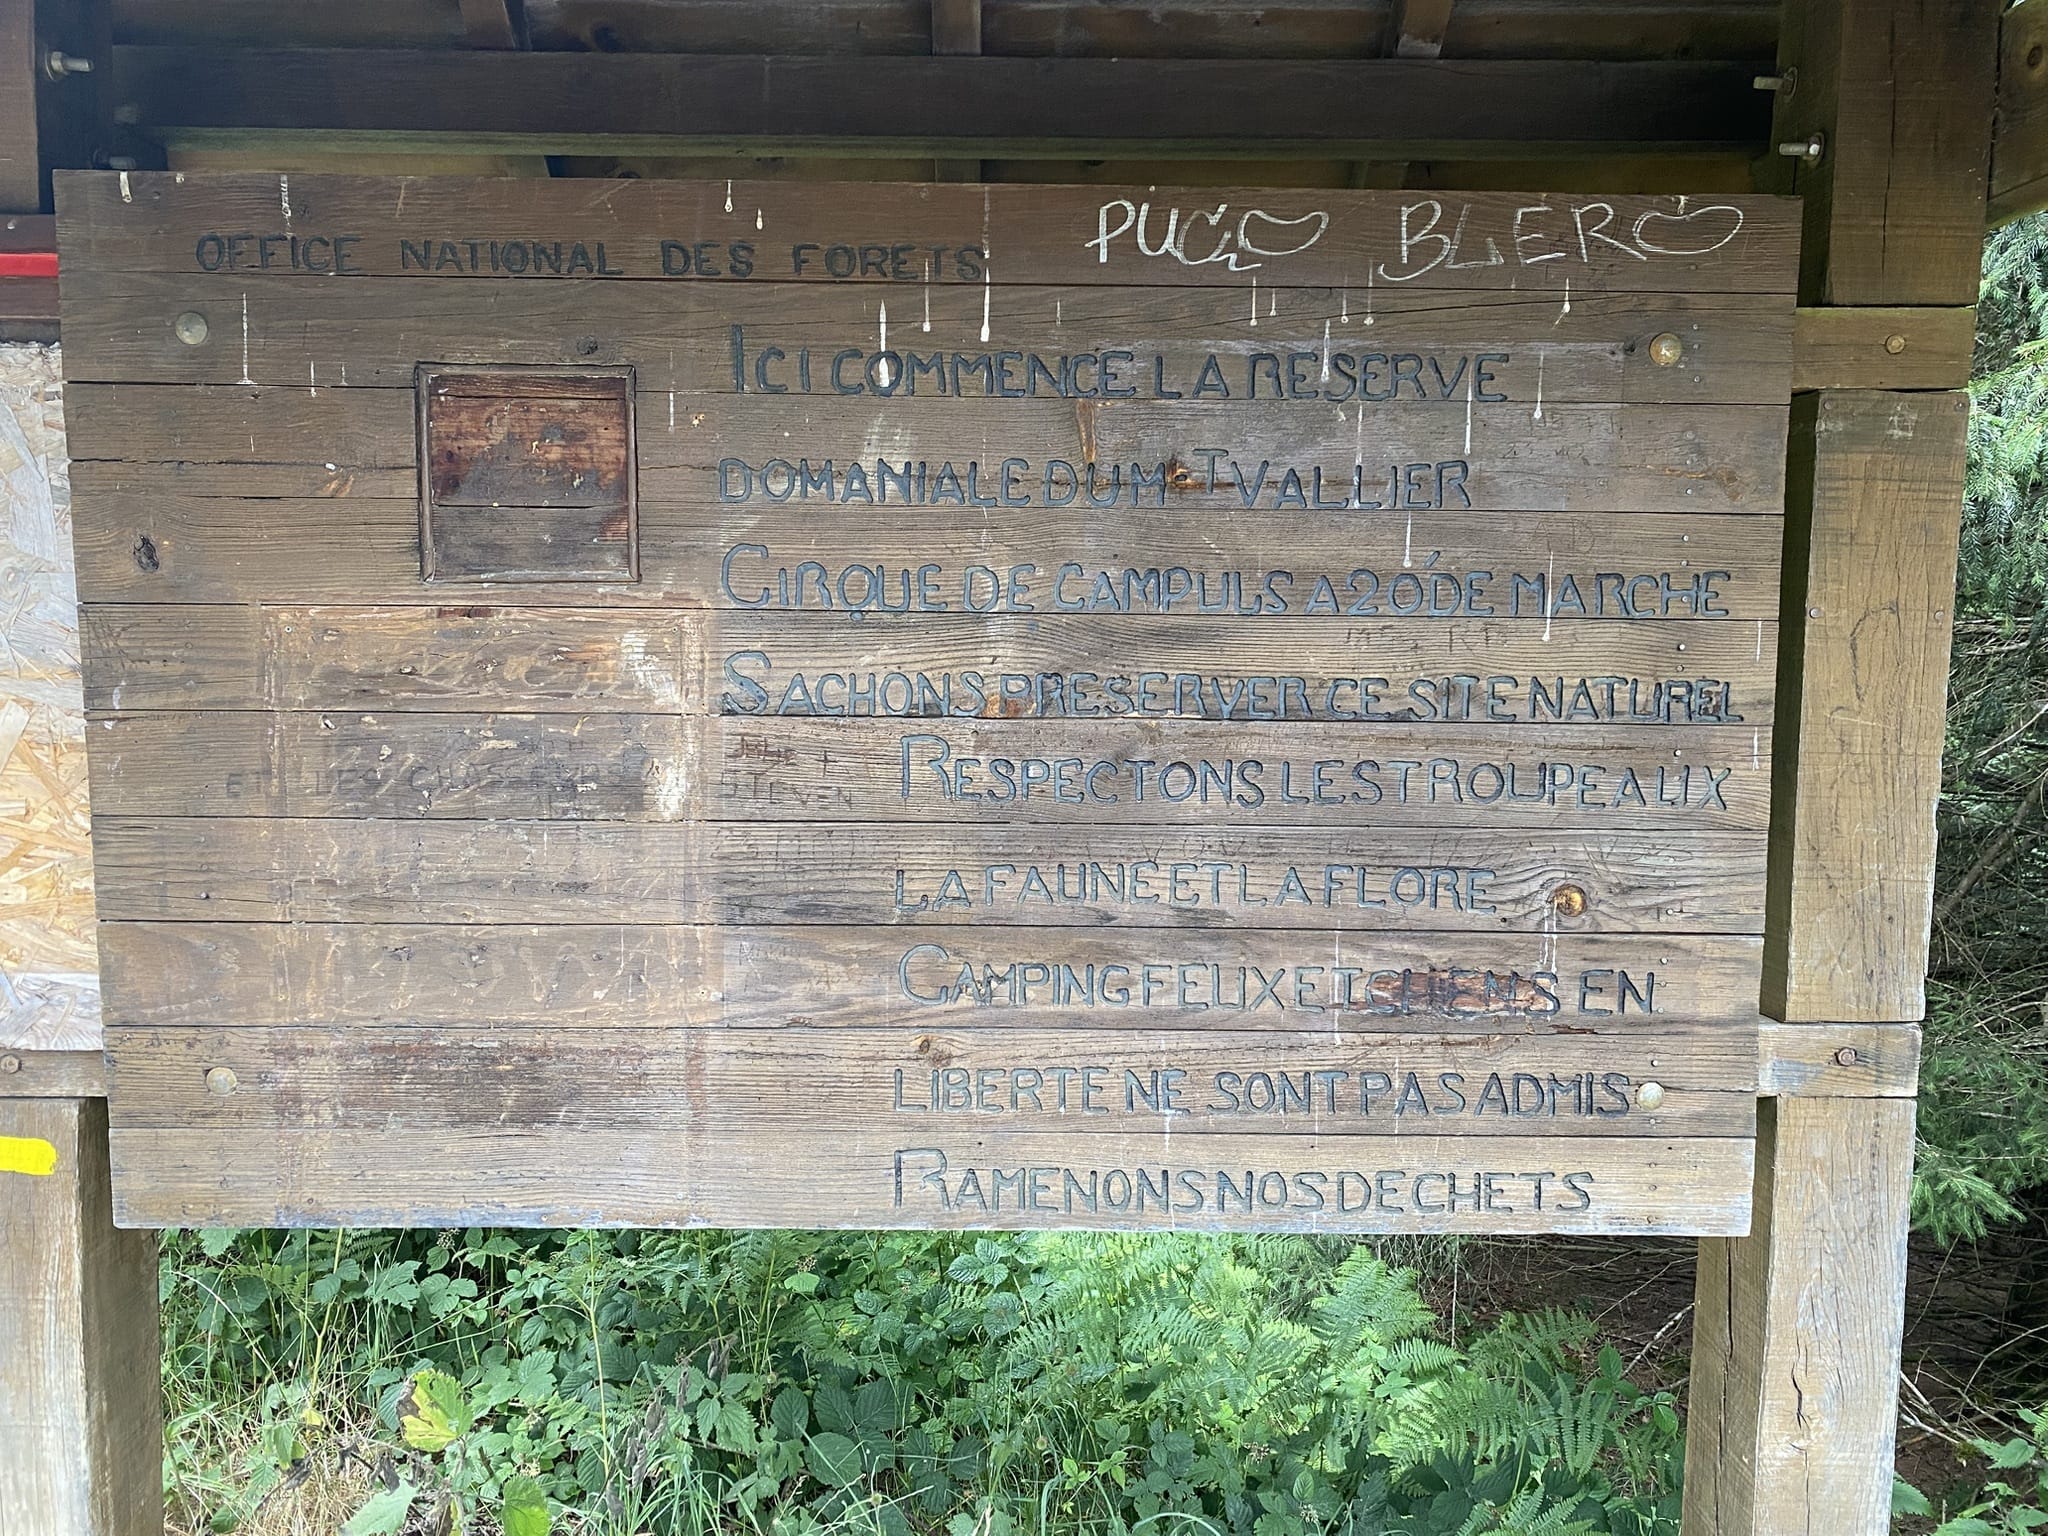 OFFICE NATIONAL DES FORETS
PUCO BLERO
ICI COMMENCE LA RESERVE
DOMANIALE DU M T VALLIER
CIRQUE DE CAMPULS A 20' DE MARCHE
SACHONS PRESERVER CE SITE NATUREL
RESPECTONS LES TROUPEAUX
ET LES CHASSEURS
STEVEN
LA FAUNE ET LA FLORE
CAMPING FEUX ET CHIENS EN
LIBERTE NE SONT PAS ADMIS
RAMENONS NOS DECHETS